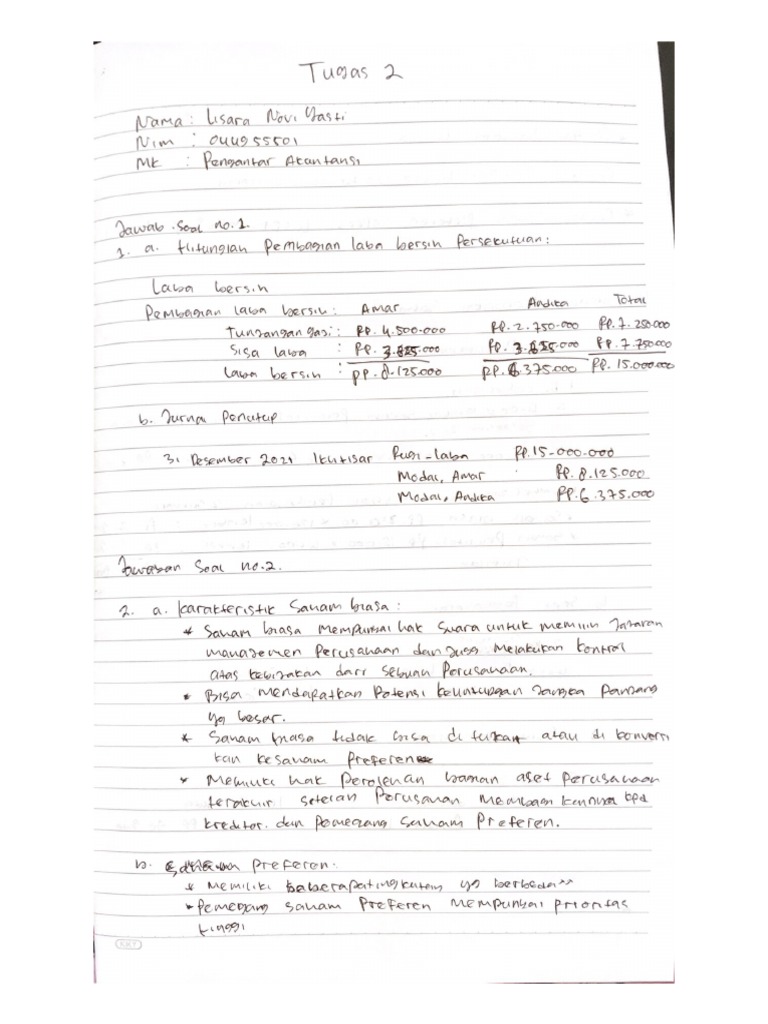 Tugas 2
Nama : Lisara Novi Yasti
Nim : 044955501
MK : Pengantar Akantansi
Jawab Soal no.1.
1. a. Hitungian Pembagian laba bersih Persekutuan :
Laba bersih
Pembagian laba bersih : Amar Andika Total
Tunjangan gaji : Rp. 4.500.000 Rp. 2.750.000 Rp. 7.250.000
Sisa laba : Rp. 3.625.000 Rp. 3.625.000 Rp. 7.750.000
Laba bersih : Rp. 8.125.000 Rp. 6.375.000 Rp. 15.000.000
b. Jurnal Penutup
31 Desember 2021 Ikhtisar Rugi-laba Rp. 15.000.000
Modal, Amar Rp. 8.125.000
Modal, Andika Rp. 6.375.000
Jawaban Soal no.2.
2. a. Karakteristik Saham biasa :
* Saham biasa mempunyai hak suara untuk memilih Jajaran
manajemen Perusahaan dan juga melakukan kontrol
atas kebijakan dari sebuah Perusahaan.
* Bisa mendapatkan Potensi keuntungan Jangka Panjang
yg besar.
* Saham biasa tidak bisa di tukar atau di konversi
kan kesaham Preferen
* Memiliki hak Perolehan bahan aset Perusahaan
terakhir setelah Perusahan kpd
kreditor. dan Pemegang saham Preferen.
b. Saham Preferen.
* Memiliki beberapa tingkatan yg berbeda"
* Pemegang saham Preferen mempunyai prioritas
tinggi